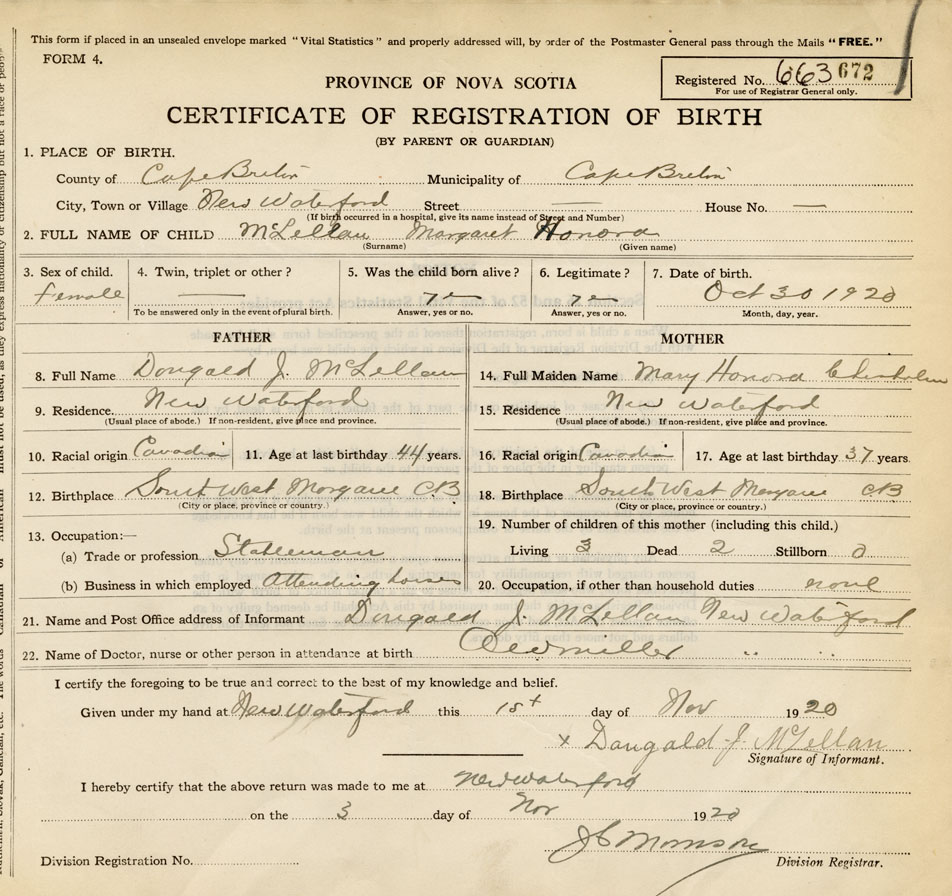 This form if placed in an unsealed envelope marked "Vital Statistics" and properly addressed will, by order of the Postmaster General pass through the Mails "FREE."
FORM 4.
Registered No. 663 672
For use of Registrar General only.
PROVINCE OF NOVA SCOTIA
CERTIFICATE OF REGISTRATION OF BIRTH
(BY PARENT OR GUARDIAN)
1. PLACE OF BIRTH.
County of Cape Breton Municipality of Cape Breton
City, Town or Village New Waterford Street — House No. —
(If birth occurred in a hospital, give its name instead of Street and Number)
2. FULL NAME OF CHILD McLellan Margaret Honora
(Surname) (Given name)
3. Sex of child. 4. Twin, triplet or other? 5. Was the child born alive? 6. Legitimate? 7. Date of birth.
female — Oct 30 1920
To be answered only in the event of plural birth. Answer, yes or no. Answer, yes or no. Month, day, year.
FATHER MOTHER
8. Full Name Dougald J. McLellan 14. Full Maiden Name Mary Honora Chisholm
9. Residence. New Waterford 15. Residence New Waterford
(Usual place of abode.) If non-resident, give place and province. (Usual place of abode.) If non-resident, give place and province.
10. Racial origin Canadian 11. Age at last birthday 44 years. 16. Racial origin Canadian 17. Age at last birthday 37 years.
12. Birthplace South West Margaree CB 18. Birthplace South West Margaree CB
(City or place, province or country.) (City or place, province or country.)
13. Occupation:— 19. Number of children of this mother (including this child.)
(a) Trade or profession Stableman Living 3 Dead 2 Stillborn 0
(b) Business in which employed Attending horses 20. Occupation, if other than household duties none
21. Name and Post Office address of Informant Dougald J. McLellan New Waterford
22. Name of Doctor, nurse or other person in attendance at birth " "
I certify the foregoing to be true and correct to the best of my knowledge and belief.
Given under my hand at New Waterford this 1st day of Nov 1920
x Dougald J. McLellan
Signature of Informant.
I hereby certify that the above return was made to me at New Waterford
on the 3 day of Nov 1920
Division Registration No. Division Registrar.